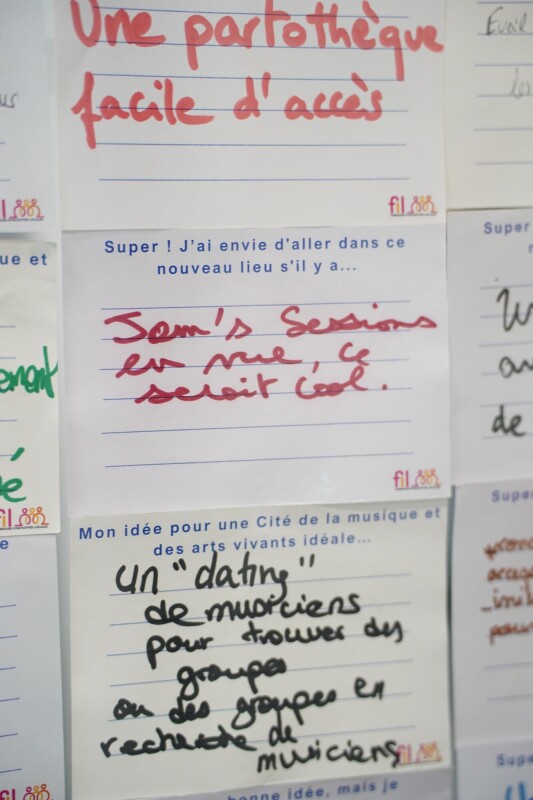 Une partothèque
facile d'accès
fil
Super ! J'ai envie d'aller dans ce
nouveau lieu s'il y a...
Jam's Sessions
en rue, ce
serait cool.
fil
Mon idée pour une Cité de la musique et
des arts vivants idéale...
un "dating"
de musiciens
pour trouver des
groupes
ou des groupes en
recherche de
musiciens
fil
bonne idée, mais je
ue et
ement
é
fil
e
fil
Eveil
les
Super
au
de
Super
Supe